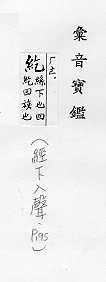 彙音寶鑑
厂ㄜ.
紇 絲下也四
紇回族也
(經下入聲 P195)